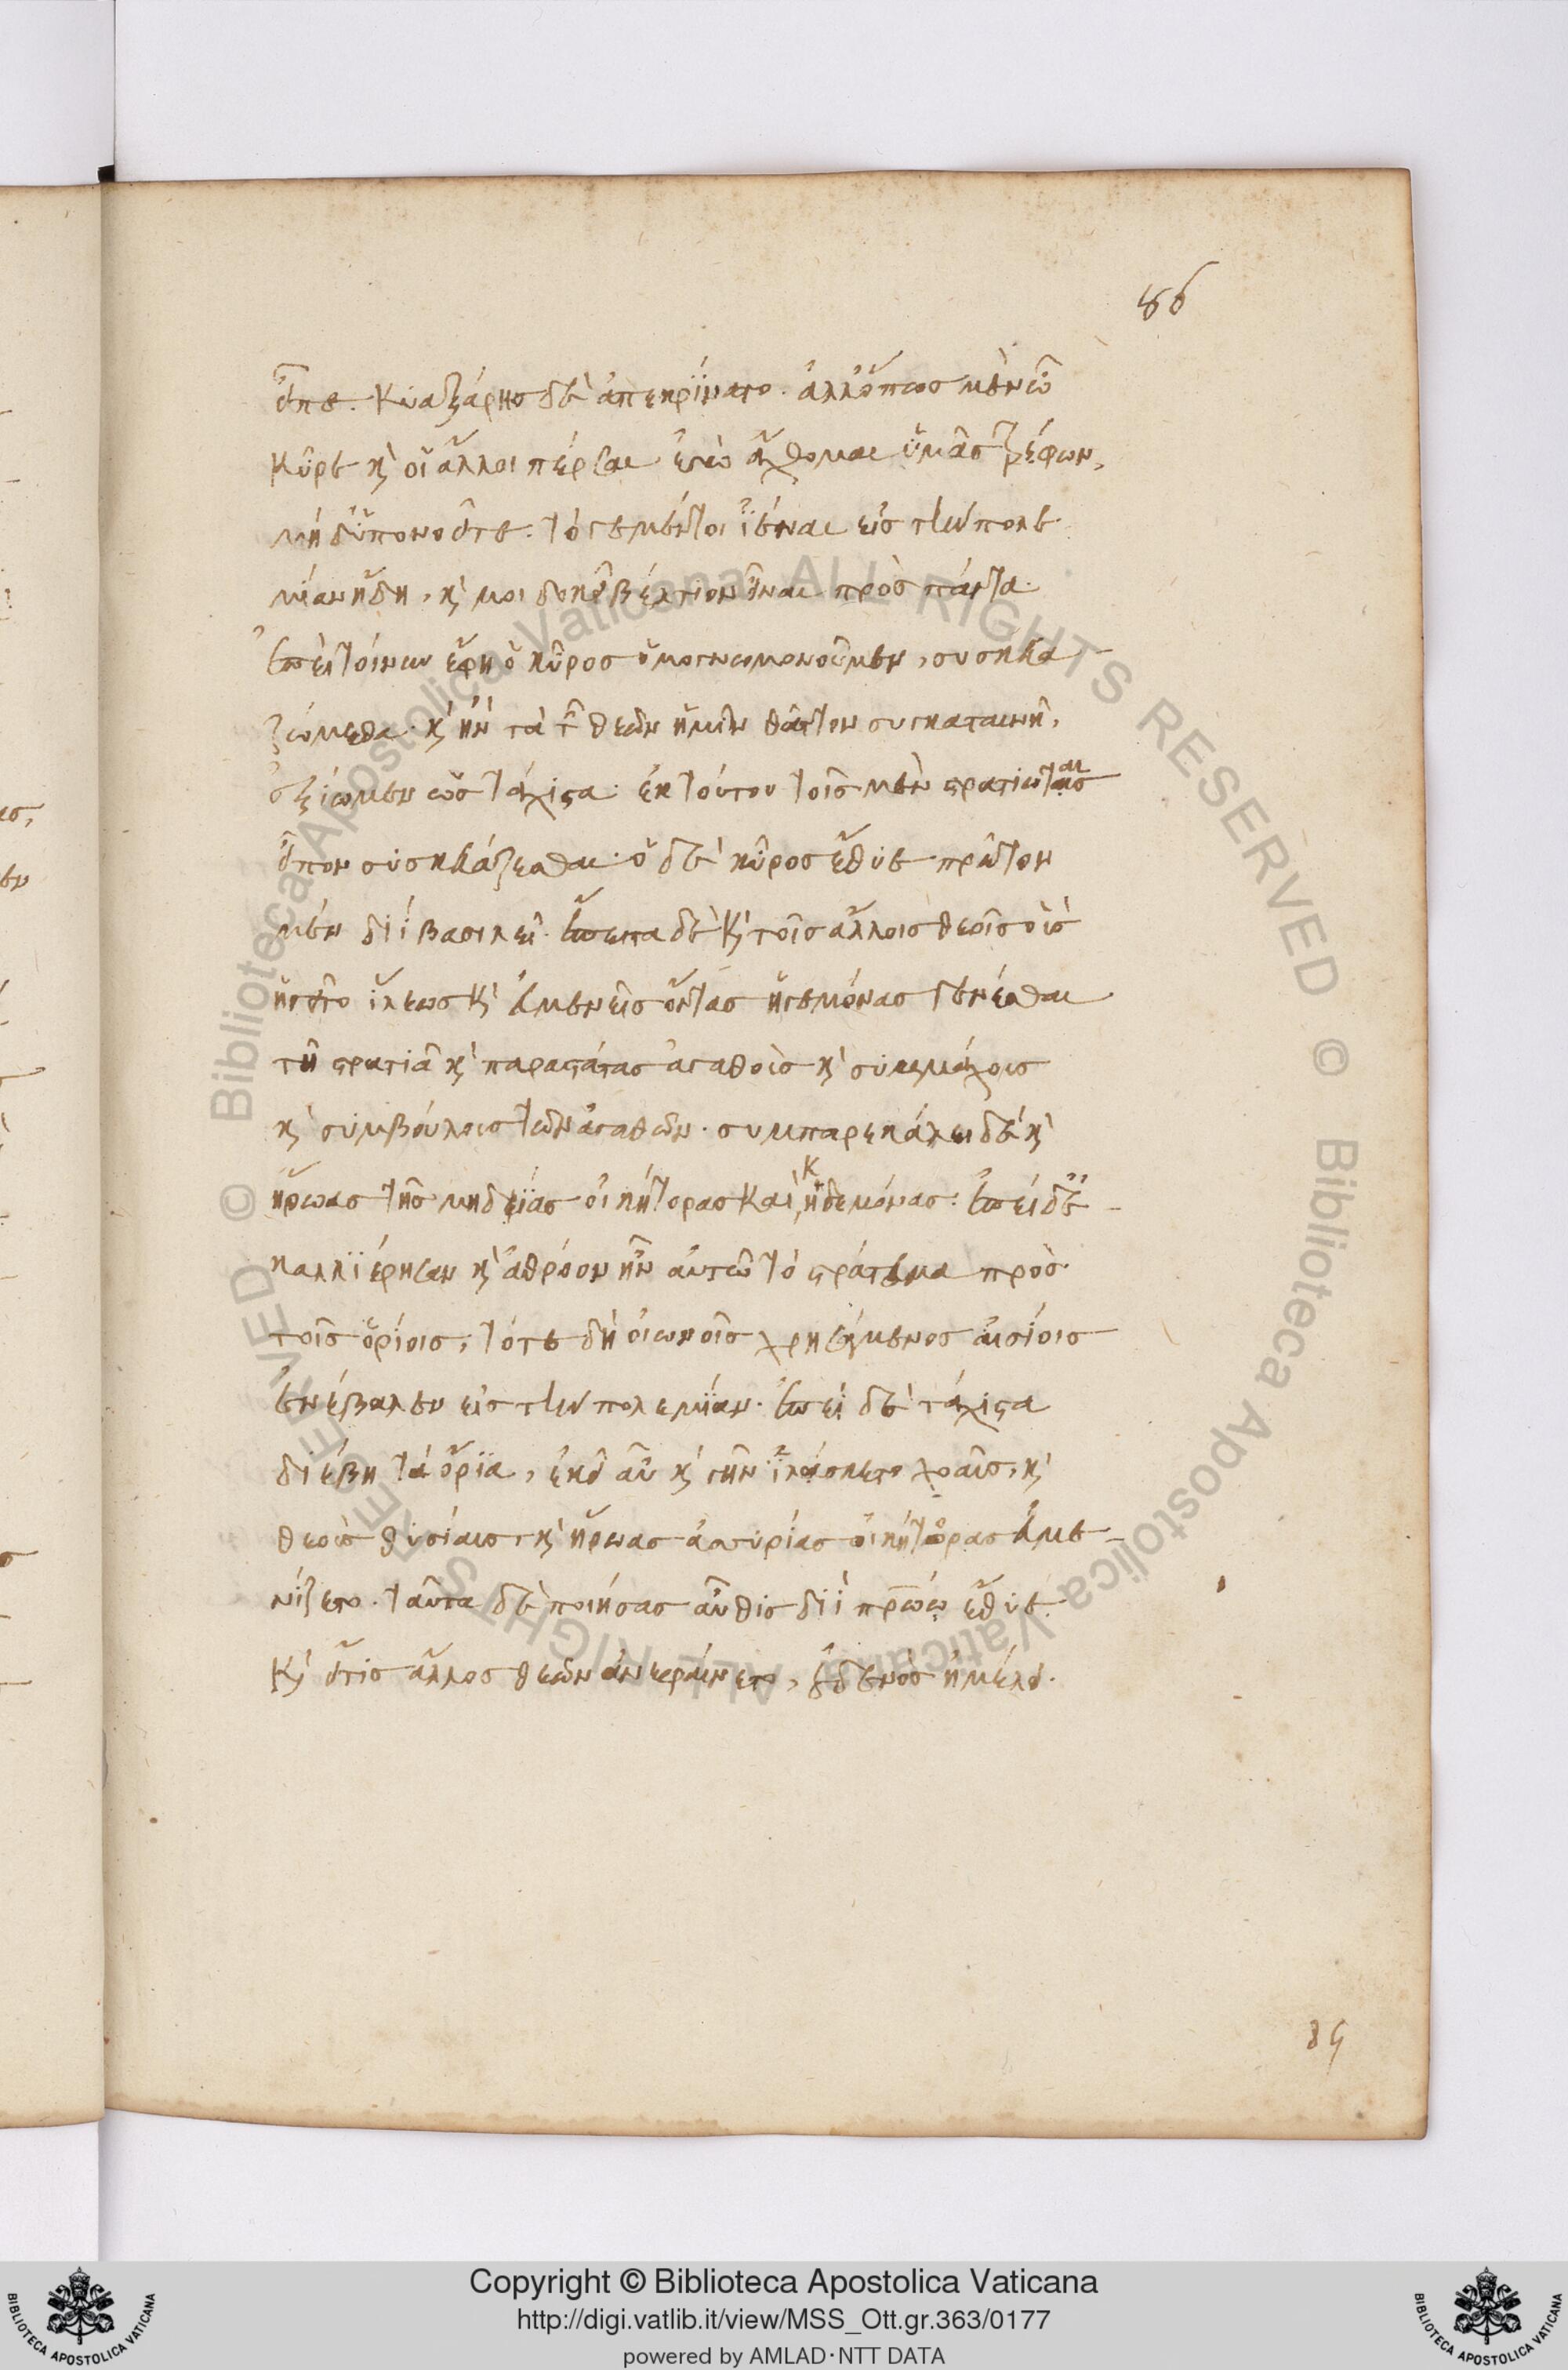 86
εἶπε. Κυαξάρης δὲ ἀπεκρίνατο. ἀλλ' ὅπως μὲν ὦ
κῦρε καὶ οἱ ἄλλοι πέρσαι ἐγὼ ἄχθομαι ὑμᾶς τρέφων,
μηδ' ὑπονοεῖτε. τό γε μέντοι ἰέναι εἰς τὴν πολε
μίαν ἤδη, καί μοι δοκεῖ βέλτιον εἶναι πρὸς πάντα.
ἐπεὶ τοίνυν ἔφη ὁ κῦρος ὁμογνωμονοῦμεν, συσκευα
ζώμεθα. καὶ ἢν τὰ τῶν θεῶν ἡμῖν θᾶττον συγκαταινῇ,
ἐξίωμεν ὡς τάχιστα. ἐκ τούτου τοῖς μὲν στρατιώταις
εἶπον συσκευάζεσθαι. ὁ δὲ κῦρος ἔθυε πρῶτον
μὲν διὶ βασιλεῖ. ἔπειτα δὲ καὶ τοῖς ἄλλοις θεοῖς οὓς
ἡγεῖτο ἵλεως καὶ εὐμενεῖς ὄντας ἡγεμόνας γενέσθαι
τῇ στρατιᾷ καὶ παραστάτας ἀγαθοὺς καὶ συμμάχους
καὶ συμβούλους τῶν ἀγαθῶν. συμπαρεκάλει δὲ καὶ
ἥρωας τῆς μηδείας οἰκήτορας καὶ κηδεμόνας. ἐπεὶ δὲ
καλλιέρησεν καὶ ἀθρόον ἦν αὐτῷ τὸ στράτευμα πρὸς
τοῖς ὁρίοις, τότε δὴ οἰωνοῖς χρησάμενος αἰσίοις
ἐνέβαλεν εἰς τὴν πολεμίαν. ἐπεὶ δὲ τάχιστα
διέβη τὰ ὅρια, ἐκεῖ αὖ καὶ γῆν ἱλάσκετο χοαῖς, καὶ
θεοὺς θυσίαις, καὶ ἥρωας ἀσσυρίας οἰκήτορας εὐμε
νίζετο. ταῦτα δὲ ποιήσας αὖθις διὶ πατρώῳ ἔθυε
καὶ εἴ τις ἄλλος θεῶν ἀνεφαίνετο, οὐδενὸς ἠμέλει.
89
Copyright © Biblioteca Apostolica Vaticana
http://digi.vatlib.it/view/MSS_Ott.gr.363/0177
powered by AMLAD·NTT DATA